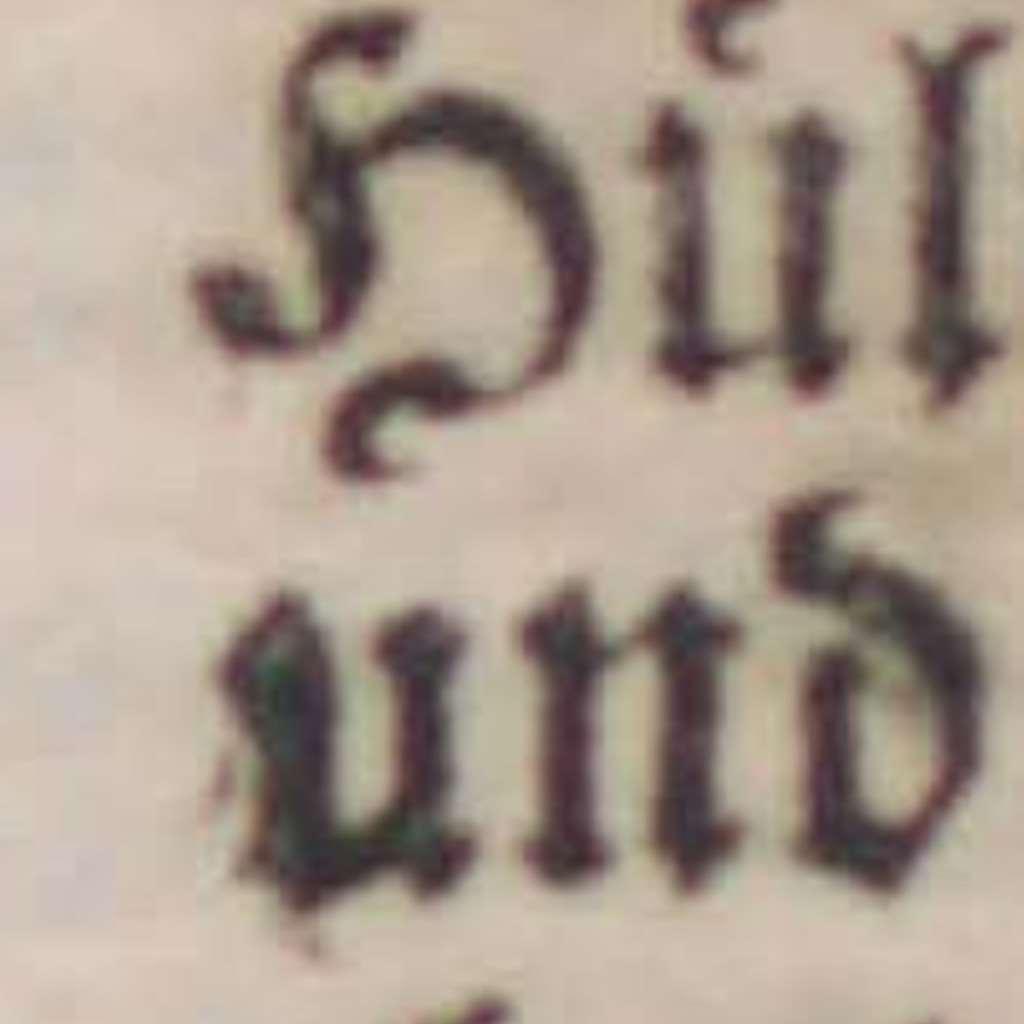 Hül
und